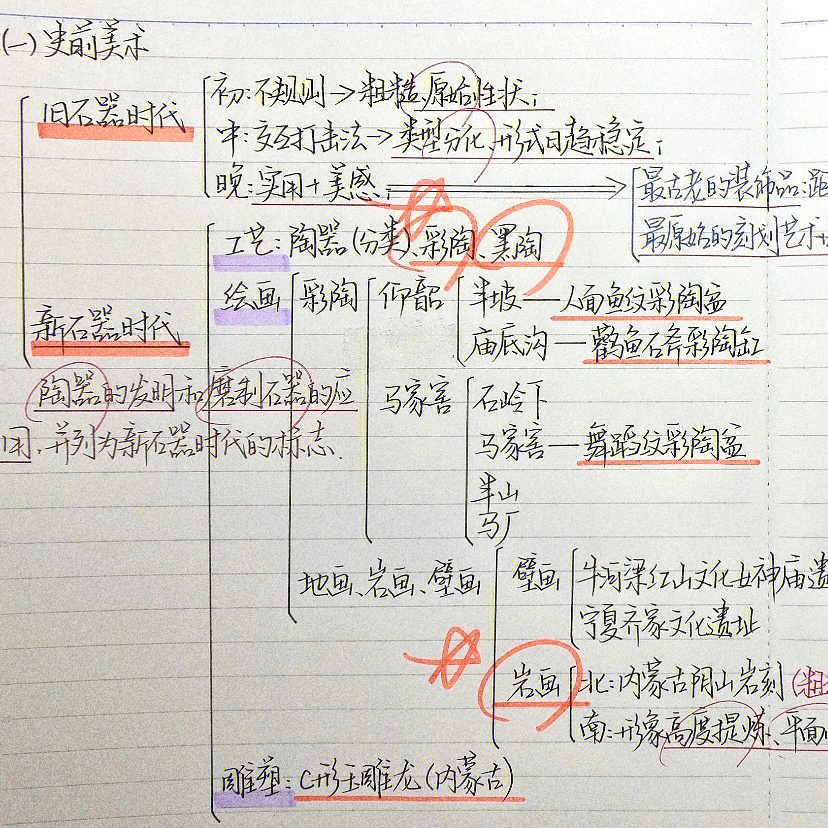 (一)史前美术
旧石器时代
初:不规则→粗糙、原始性状;
中:交互打击法→类型分化、形式日趋稳定;
晚:实用+美感;
最古老的装饰品:距
最原始的刻划艺术
新石器时代
陶器的发明和磨制石器的应
用,并列为新石器时代的标志.
工艺:陶器(分类)、彩陶、黑陶
绘画 彩陶 仰韶 半坡—人面鱼纹彩陶盆
庙底沟—鹳鱼石斧彩陶缸
马家窑 石岭下
马家窑—舞蹈纹彩陶盆
半山
马厂
地画、岩画、壁画 壁画 牛河梁红山文化女神庙遗
宁夏齐家文化遗址
岩画 北:内蒙古阴山岩刻(粗
南:形象高度提炼、平面
雕塑:C形玉雕龙(内蒙古)